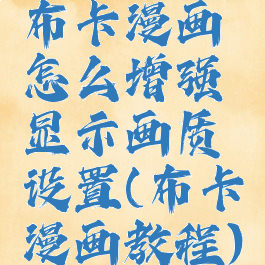 布卡漫画
怎么增强
显示画质
设置(布卡
漫画教程)